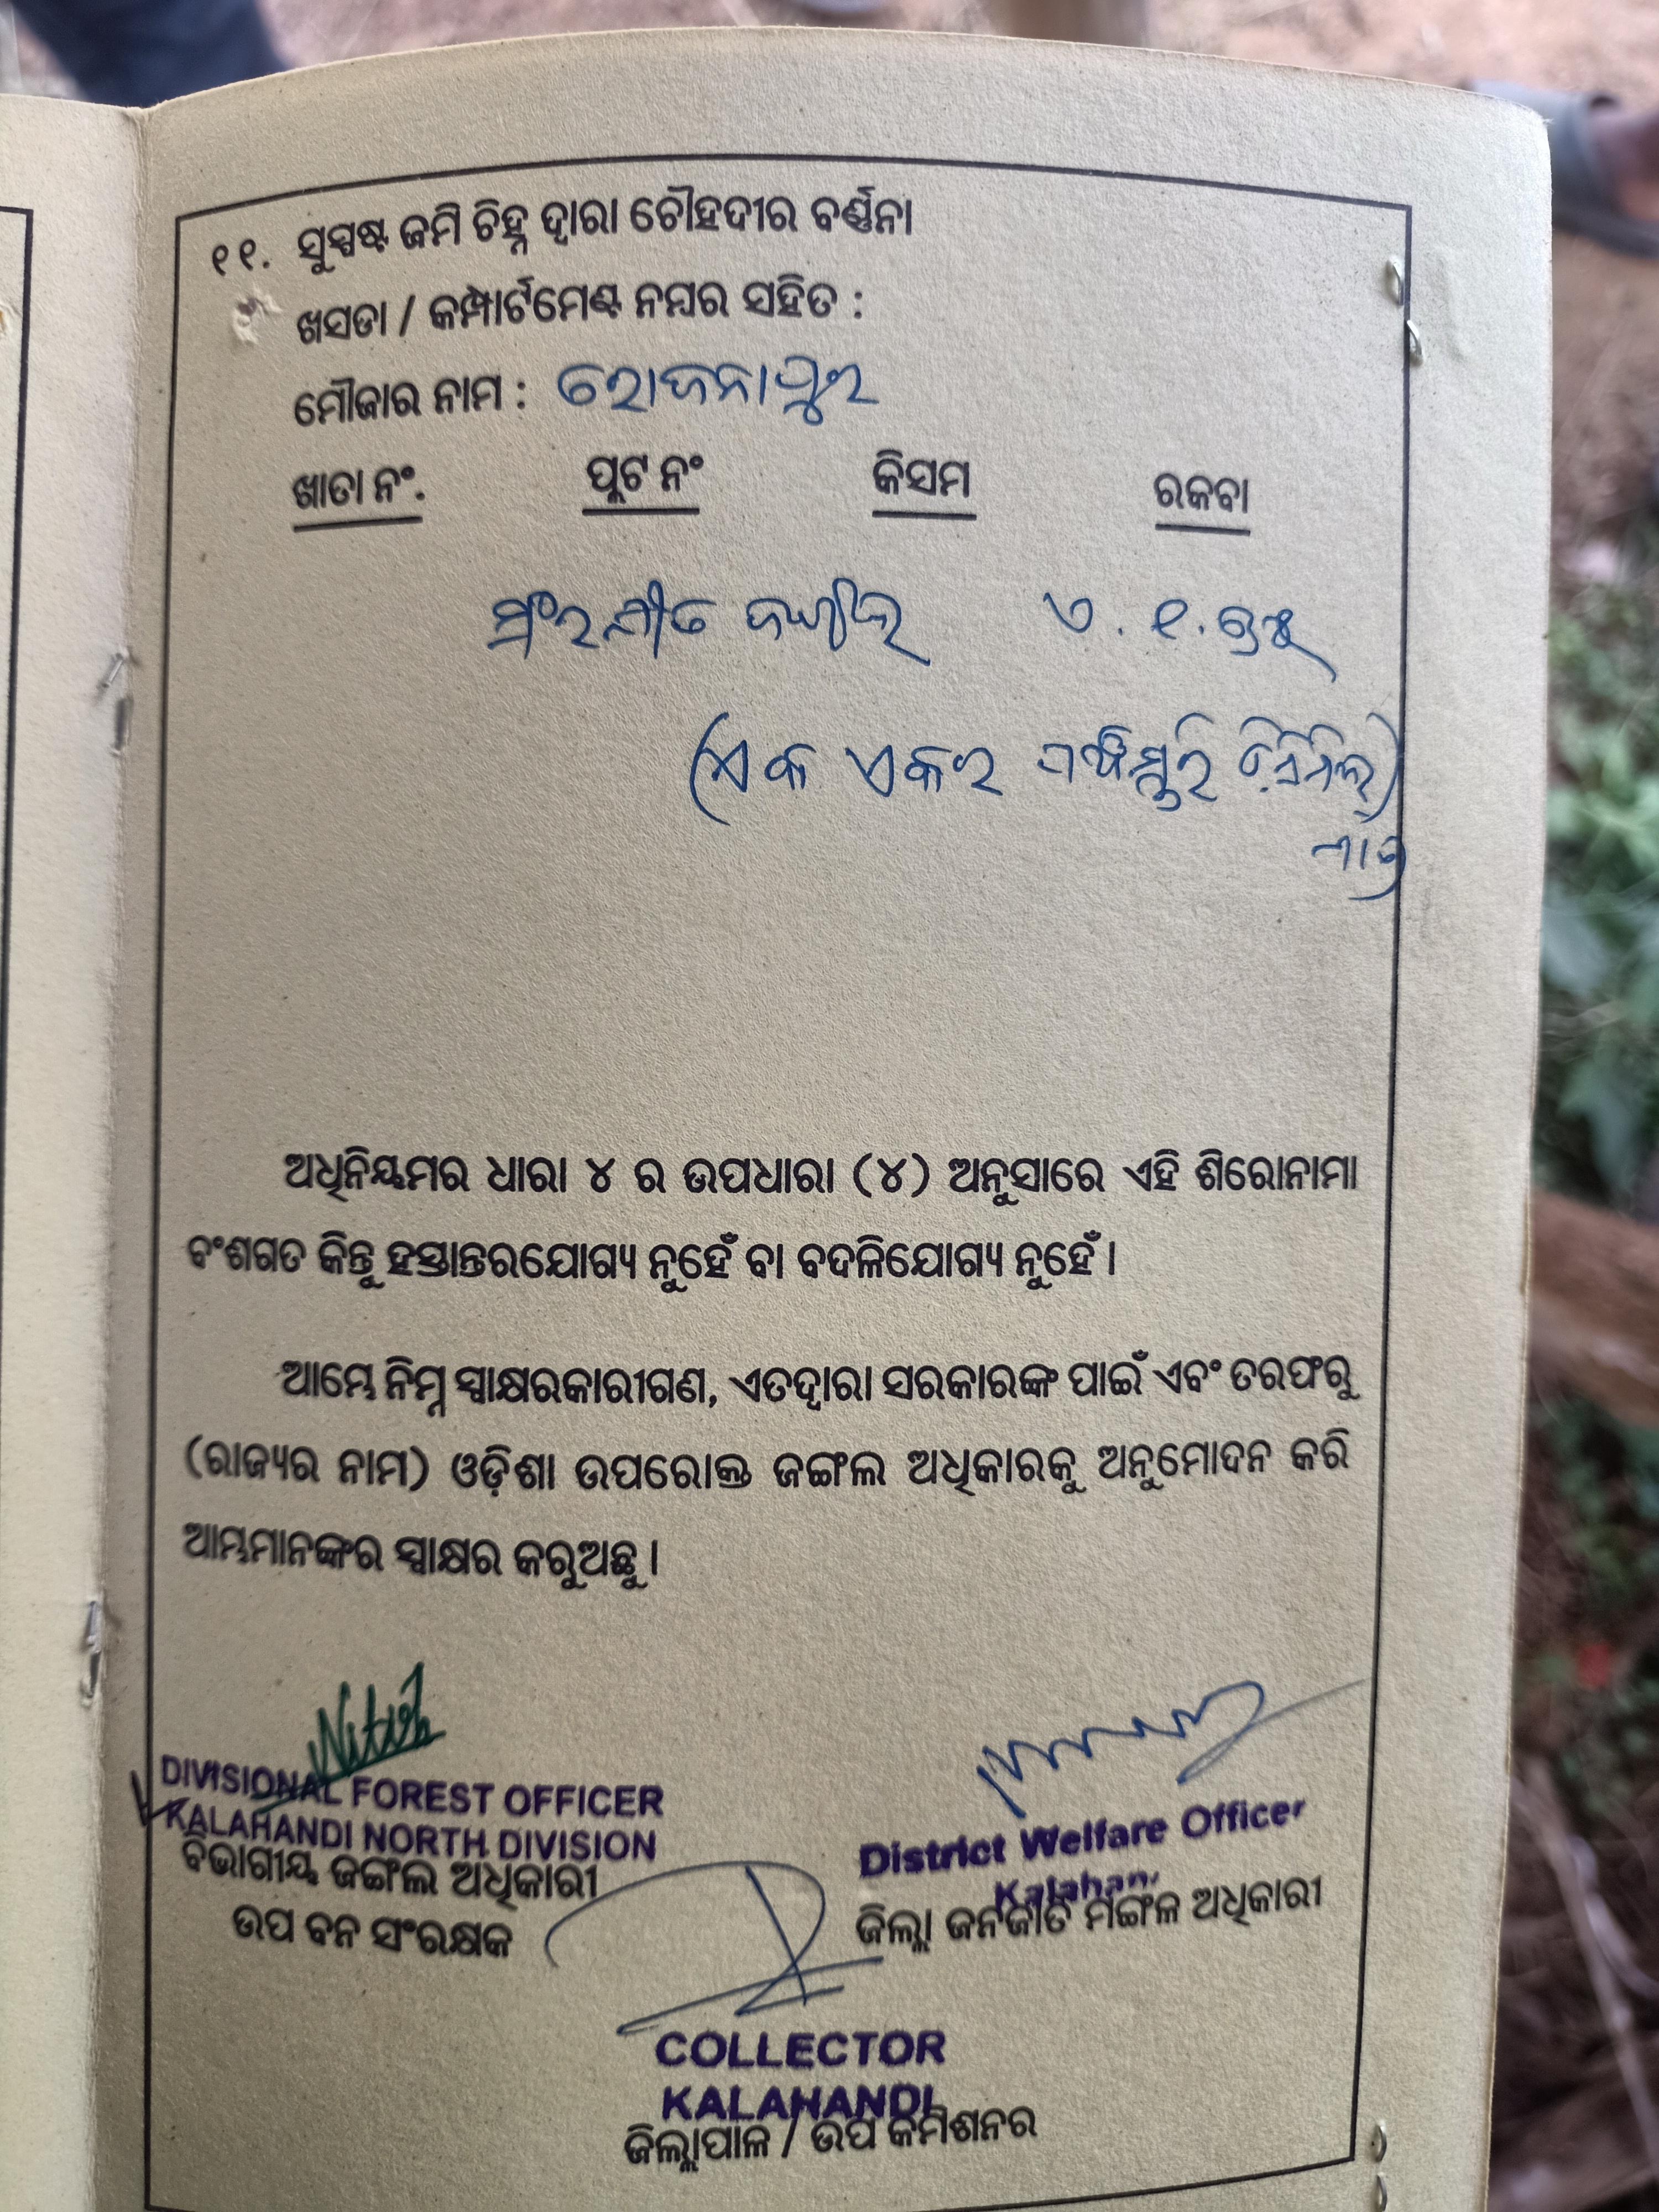 ୧୧. ସୁସ୍ପଷ୍ଟ ଜମି ଚିହ୍ନ ଦ୍ୱାରା ଚୌହଦୀର ବର୍ଣ୍ଣନା
ଖସଡା / କମ୍ପାର୍ଟମେଣ୍ଟ ନମ୍ବର ସହିତ :
ମୌଜାର ନାମ :
ଖାତା ନଂ. ପ୍ଲଟ ନଂ କିସମ ରକବା
ସଂରକ୍ଷୀତ ଜଙ୍ଗଲ ଏ . ୧ .
(ଏକ ଏକର ପଞ୍ଚସ୍ତରି ଡିସିମିଲ)
ମାତ୍ର
ଅଧିନିୟମର ଧାରା ୪ ର ଉପଧାରା (୪) ଅନୁସାରେ ଏହି ଶିରୋନାମା
ବଂଶଗତ କିନ୍ତୁ ହସ୍ତାନ୍ତରଯୋଗ୍ୟ ନୁହେଁ ବା ବଦଳିଯୋଗ୍ୟ ନୁହେଁ ।
ଆମ୍ଭେ ନିମ୍ନ ସ୍ୱାକ୍ଷରକାରୀଗଣ, ଏତଦ୍ୱାରା ସରକାରଙ୍କ ପାଇଁ ଏବଂ ତରଫରୁ
(ରାଜ୍ୟର ନାମ) ଓଡ଼ିଶା ଉପରୋକ୍ତ ଜଙ୍ଗଲ ଅଧିକାରକୁ ଅନୁମୋଦନ କରି
ଆମ୍ଭମାନଙ୍କର ସ୍ୱାକ୍ଷର କରୁଅଛୁ ।
DIVISIONAL FOREST OFFICER
KALAHANDI NORTH DIVISION
ବିଭାଗୀୟ ଜଙ୍ଗଲ ଅଧିକାରୀ
ଉପ ବନ ସଂରକ୍ଷକ
District Welfare Officer
Kalahandi
ଜିଲ୍ଲା ଜନଜାତି ମଙ୍ଗଳ ଅଧିକାରୀ
COLLECTOR
KALAHANDI
ଜିଲ୍ଲାପାଳ / ଉପ କମିଶନର